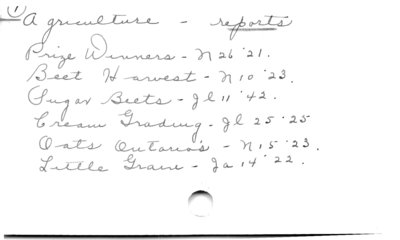 (1)
Agriculture - reports
Prize Winners - N 26 '21.
Beet Harvest - N 10 '23.
Sugar Beets - Jl 11 '42.
Cream Grading - Jl 25 '25
Oats Ontario's - N 15 '23.
Little Grain - Ja 14 '22.